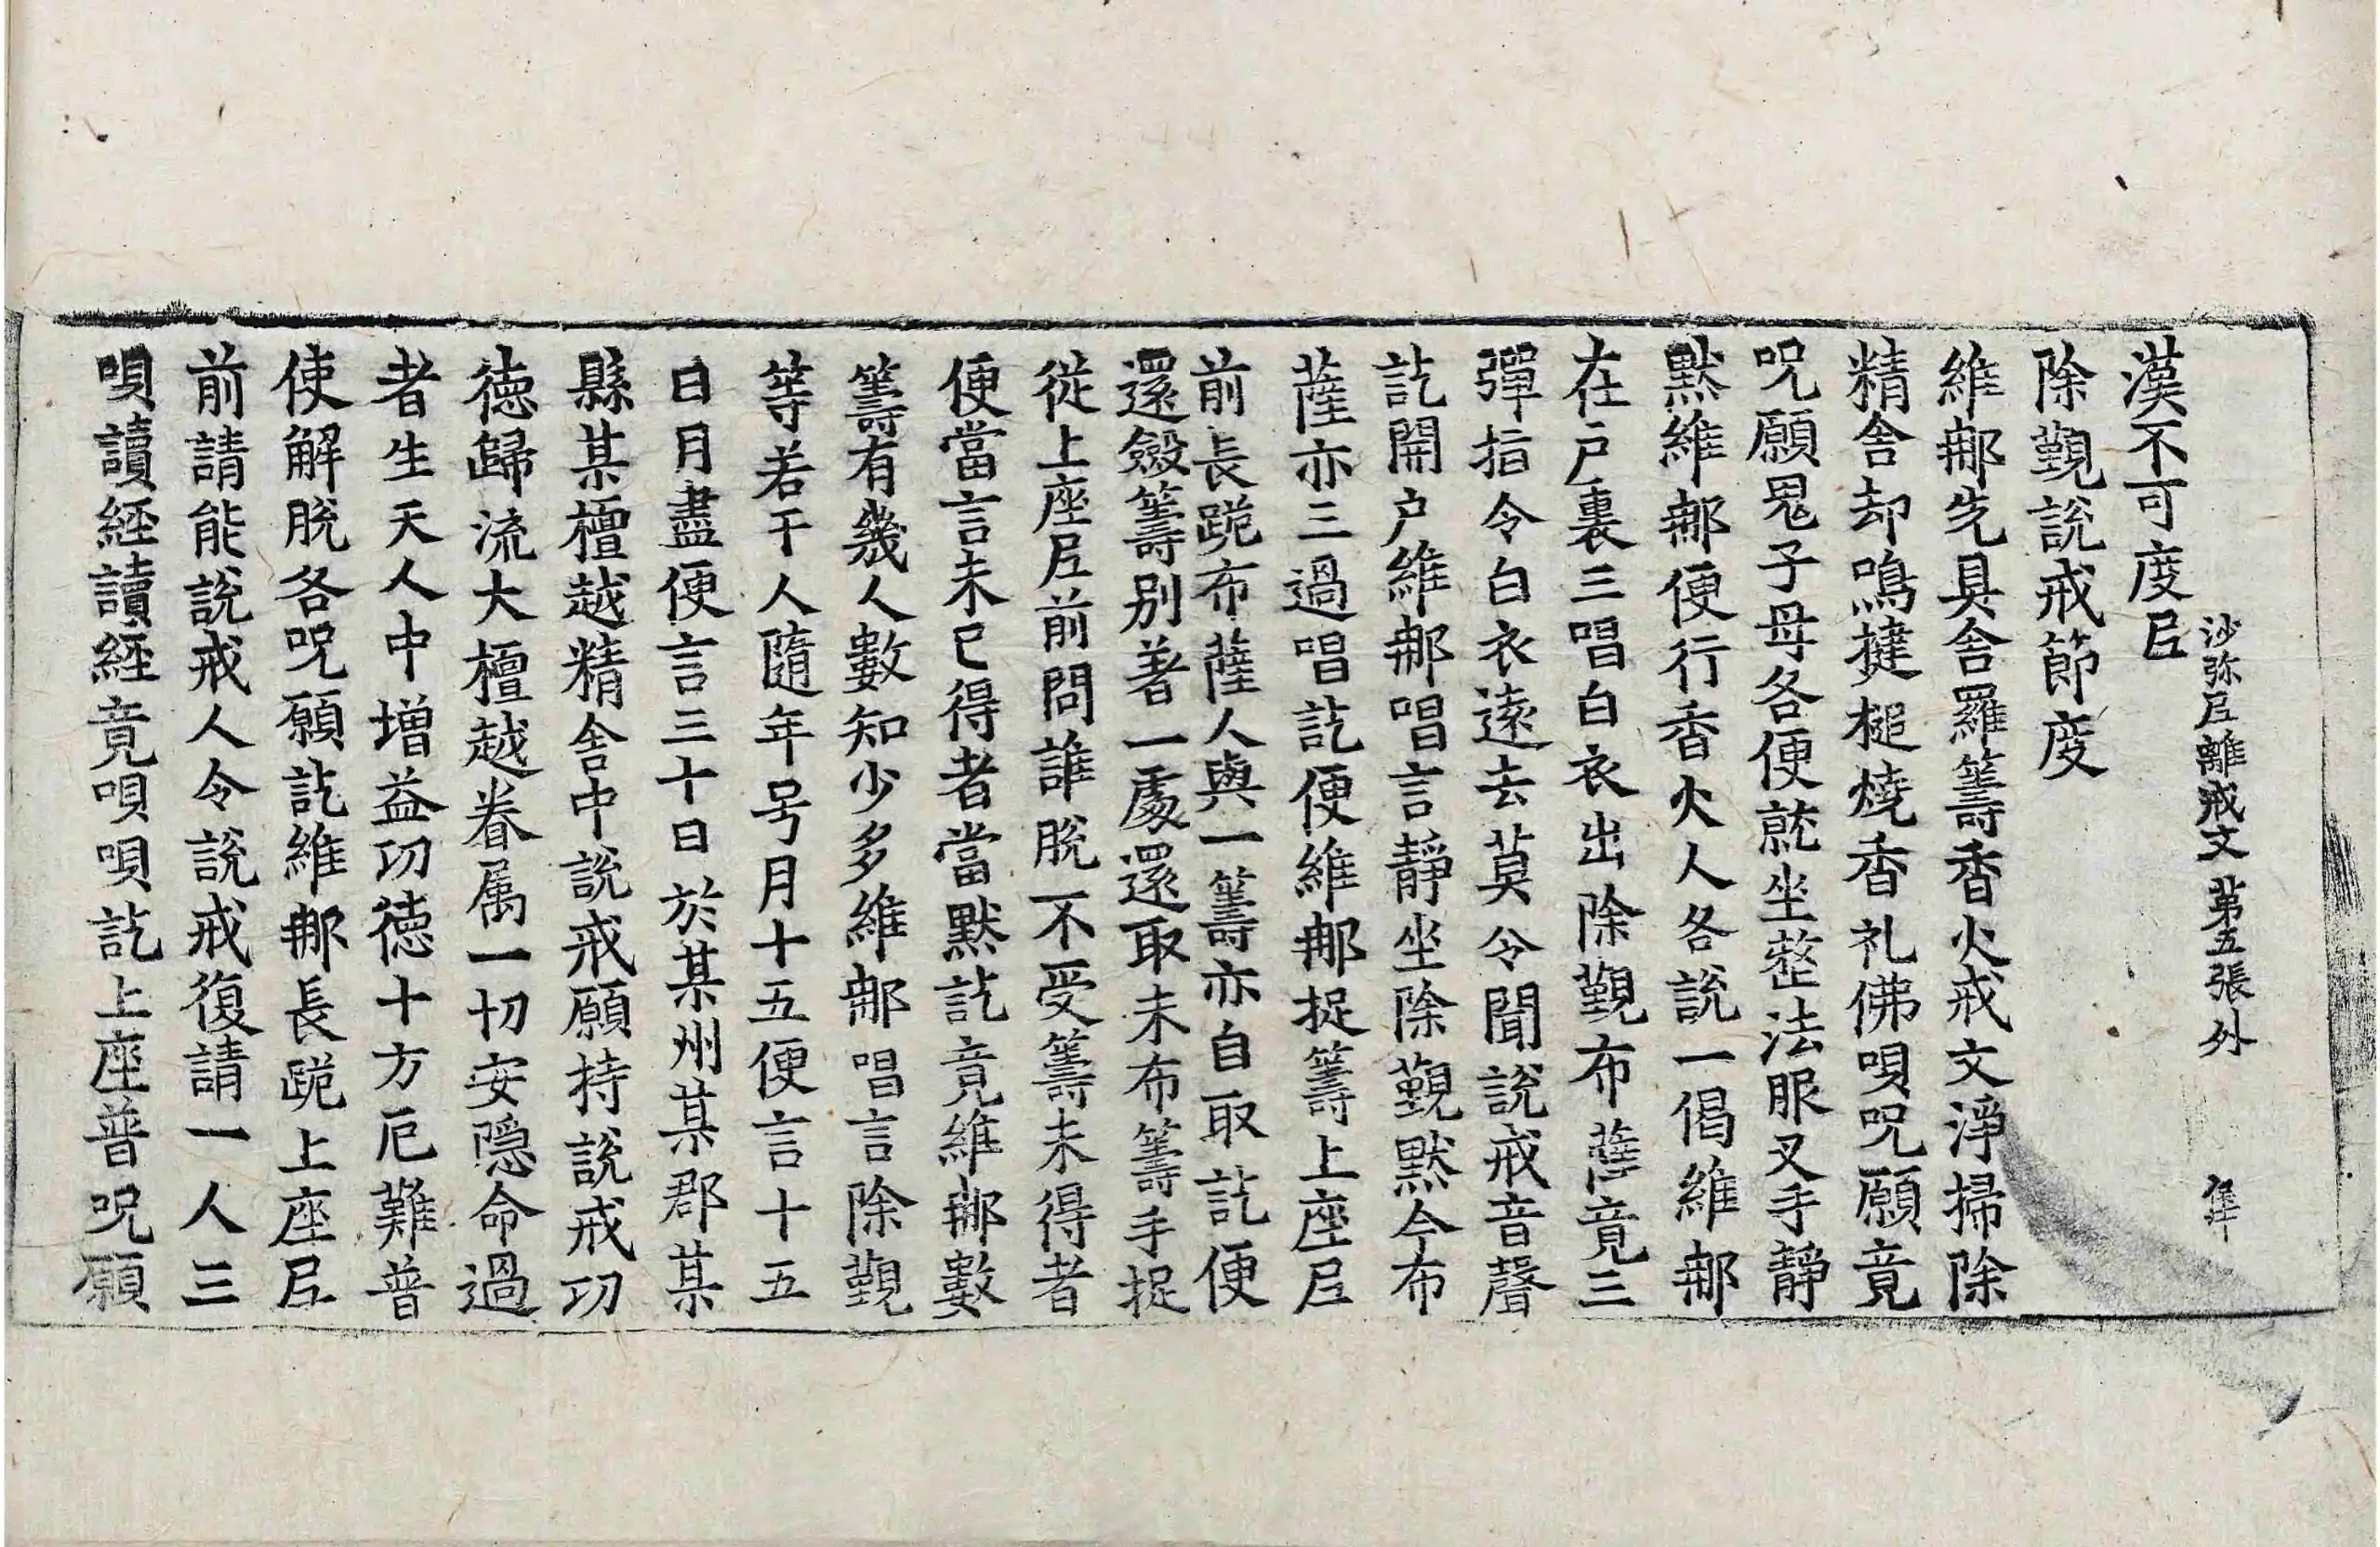 沙弥尼離戒文 第五張 外
漢不可度尼
除覲說戒節度
維那先具舍羅籌香火戒文淨掃除
精舍却鳴揵槌燒香礼佛唄呪願竟
呪願鬼子母各便就坐整法服叉手靜
默維那便行香火人各說一偈維那
在戶裏三唱白衣出除覲布薩竟三
彈指令白衣遠去莫令聞說戒音聲
訖開戶維那唱言靜坐除覲默今布
薩亦三過唱訖便維那捉籌上座尼
前長跪布薩人與一籌亦自取訖便
還斂籌別著一處還取未布籌手捉
從上座尼前問誰脫不受籌未得者
便當言未已得者當默訖竟維那數
籌有幾人數知少多維那唱言除覲
等若干人隨年号月十五便言十五
日月盡便言三十日於某州某郡某
縣某檀越精舍中說戒願持說戒功
德歸流大檀越眷属一切安隱命過
者生天人中增益功德十方厄難普
使解脫各呪願訖維那長跪上座尼
前請能說戒人令說戒復請一人三
唄讀經讀經竟唄唄訖上座普呪願